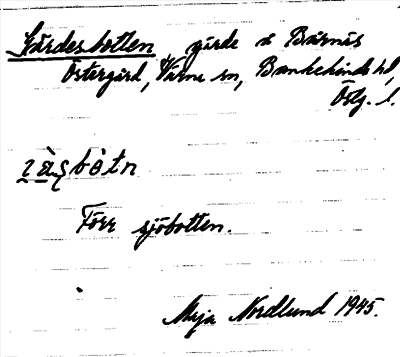 Gärdesbotten gärde å Bärnäs
Östergård, Värna sn, Bankekinds hd,
Östg. l.
Förr sjöbotten.
Maja Nordlund 1945.